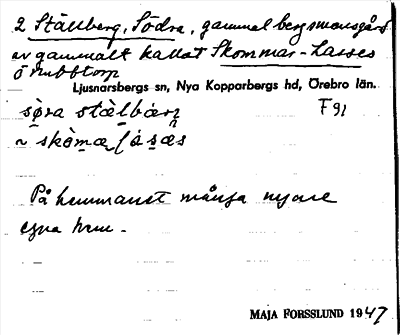 2 Ställberg, Södra, gammal bergsmansgård
av gammalt kallat Skommar-Lasses
ö nubbtorp
Ljusnarsbergs sn, Nya Kopparbergs hd, Örebro län.
søra stàlbàrn F91
~ skòmæ lásæs
På hemmanet många nyare
egna hem.
MAJA FORSSLUND 1947